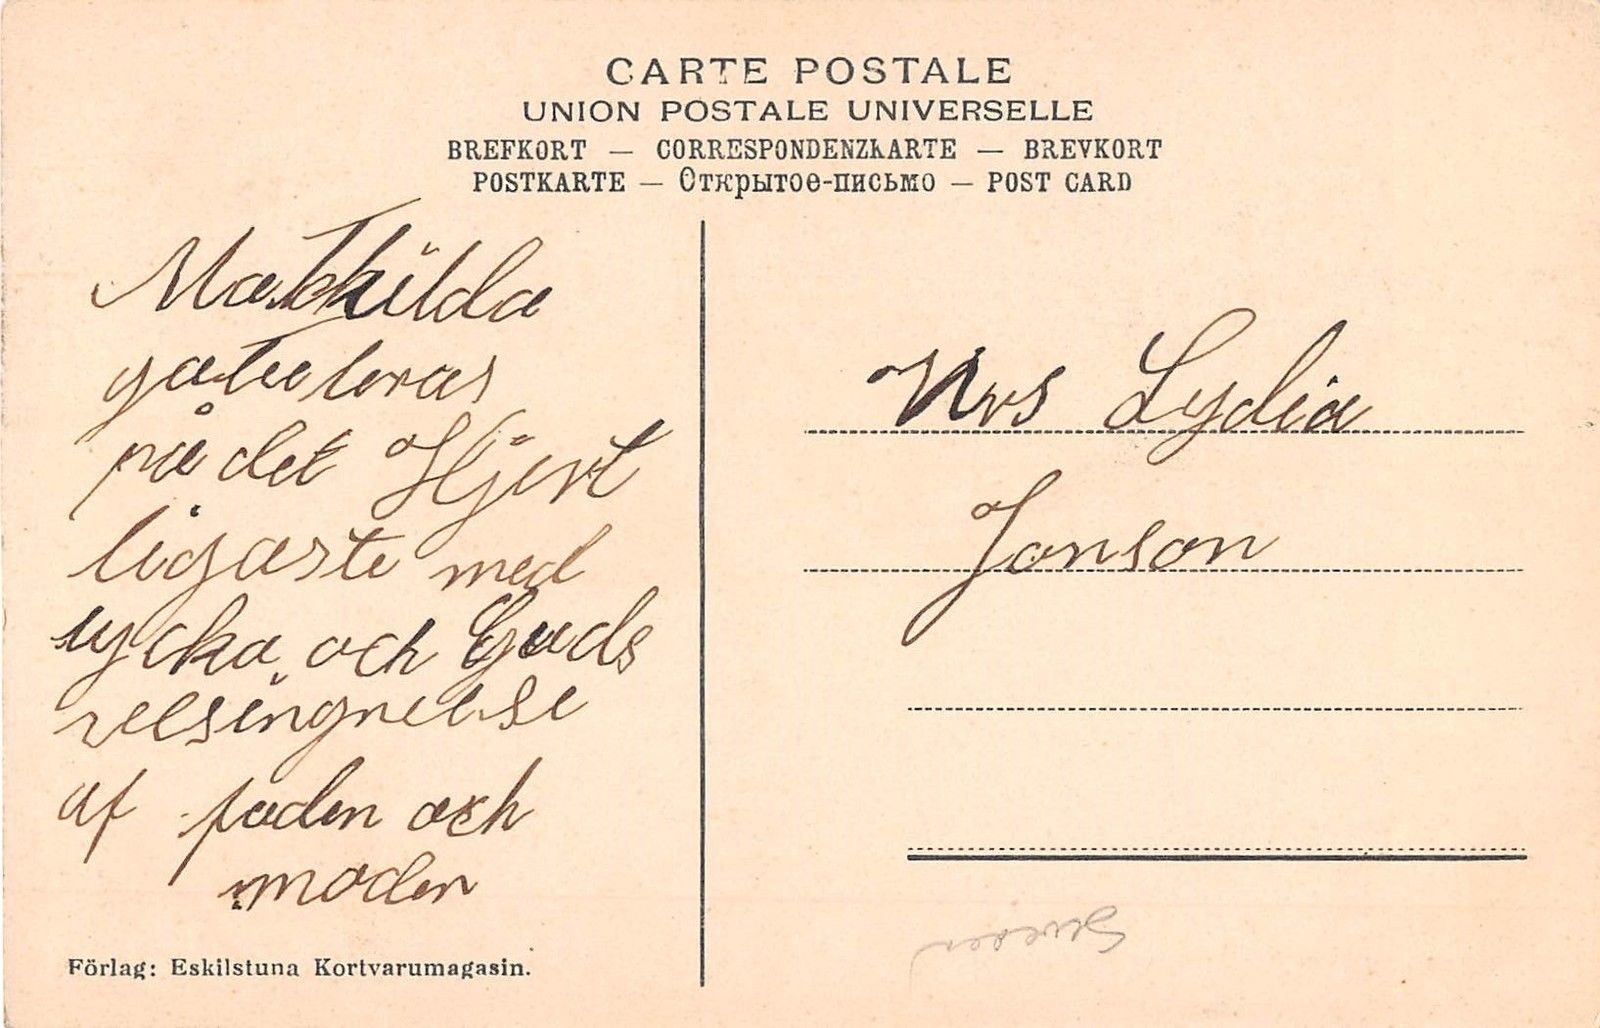 CARTE POSTALE
UNION POSTALE UNIVERSELLE
BREFKORT — CORRESPONDENZKARTE — BREVKORT
POSTKARTE — Открытое-письмо — POST CARD
Matthilda
på det Hjert
ligaste med
lycka och Guds
velsingnelse
af faden och
moden
Mrs Lydia
Jonson
Sweden
Förlag: Eskilstuna Kortvarumagasin.